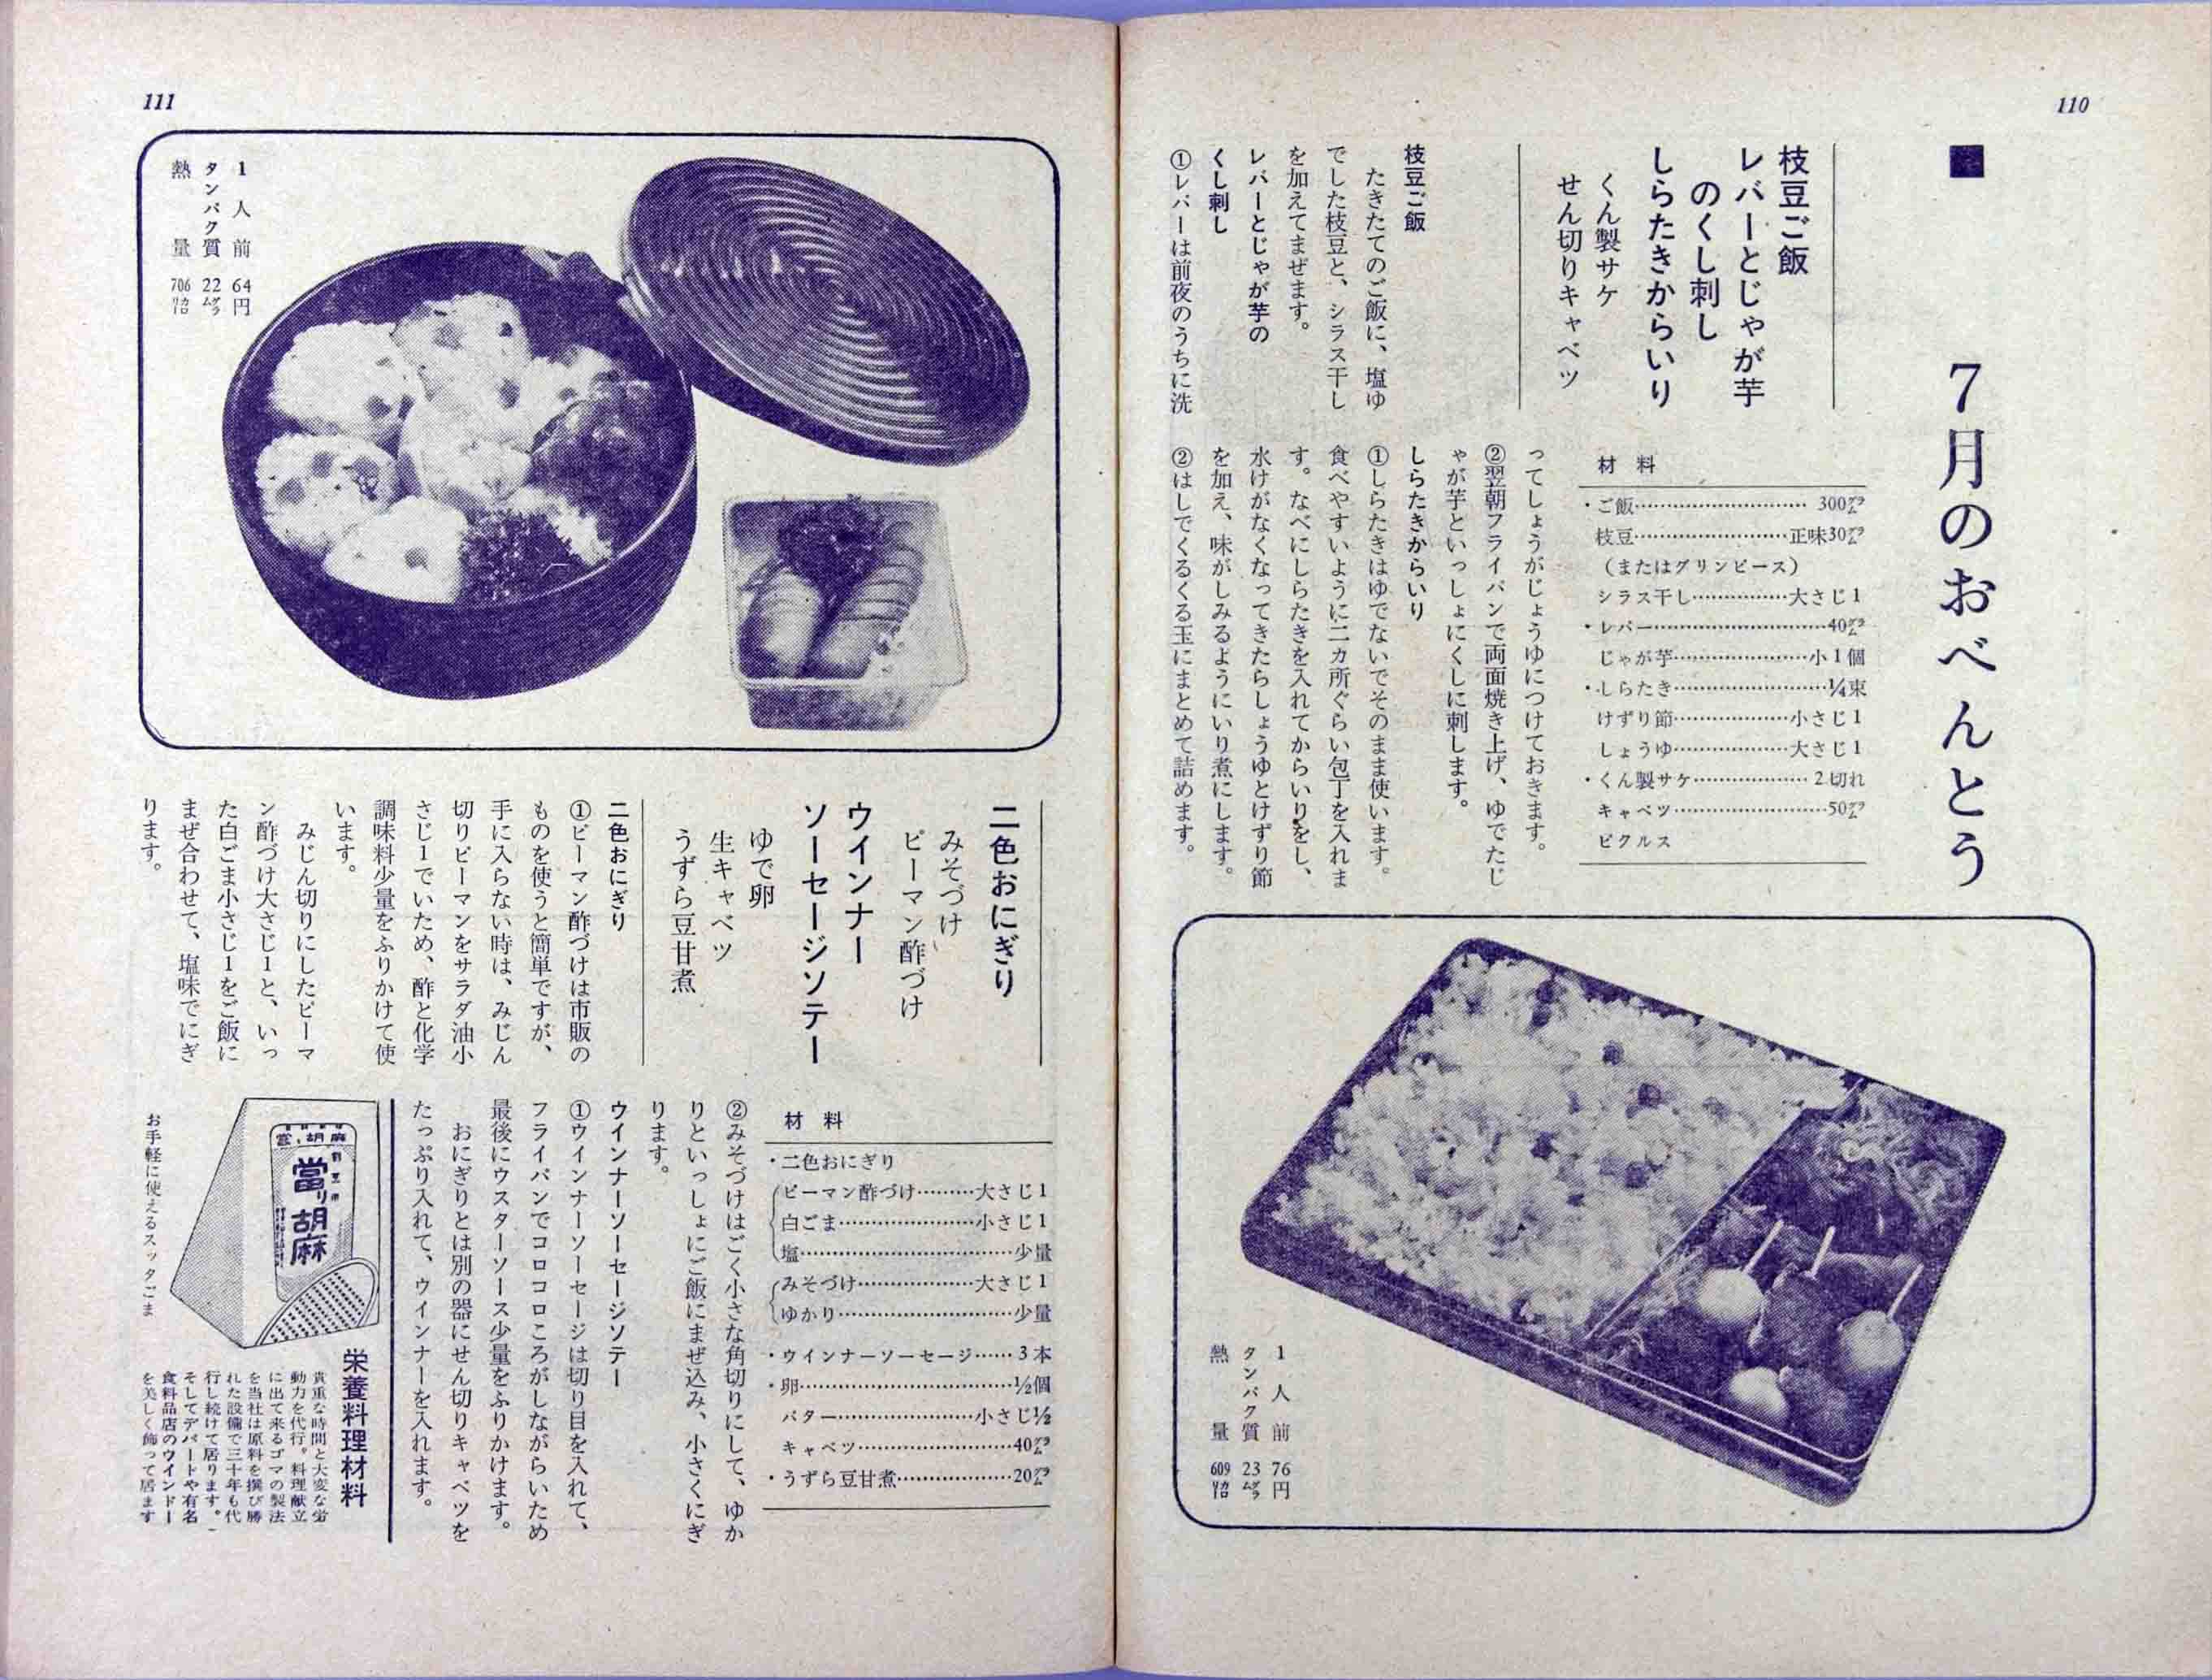 110
■ 7月のおべんとう
枝豆ご飯
レバーとじゃが芋
のくし刺し
しらたきからいり
くん製サケ
せん切りキャベツ
枝豆ご飯
たきたてのご飯に、塩ゆ
でした枝豆と、シラス干し
を加えてまぜます。
レバーとじゃが芋の
くし刺し
①レバーは前夜のうちに洗
材料
・ご飯…………300グラム
枝豆…………正味30グラム
(またはグリンピース)
シラス干し…………大さじ1
・レバー…………40グラム
じゃが芋…………小1個
・しらたき…………¼束
けずり節…………小さじ1
しょうゆ…………大さじ1
・くん製サケ…………2切れ
キャベツ…………50グラム
ピクルス
ってしょうがじょうゆにつけておきます。
②翌朝フライパンで両面焼き上げ、ゆでたじ
ゃが芋といっしょにくしに刺します。
しらたきからいり
①しらたきはゆでないでそのまま使います。
食べやすいように二カ所ぐらい包丁を入れま
す。なべにしらたきを入れてからいりをし、
水けがなくなってきたらしょうゆとけずり節
を加え、味がしみるようにいり煮にします。
②はしでくるくる玉にまとめて詰めます。
1人前 76円
タンパク質 23グラム
熱量 609カロリー
111
1人前 64円
タンパク質 22グラム
熱量 706カロリー
二色おにぎり
みそづけ
ピーマン酢づけ
ウインナー
ソーセージソテー
ゆで卵
生キャベツ
うずら豆甘煮
二色おにぎり
①ピーマン酢づけは市販の
ものを使うと簡単ですが、
手に入らない時は、みじん
切りピーマンをサラダ油小
さじ1でいため、酢と化学
調味料少量をふりかけて使
います。
みじん切りにしたピーマ
ン酢づけ大さじ1と、いっ
た白ごま小さじ1をご飯に
まぜ合わせて、塩味でにぎ
ります。
材料
・二色おにぎり
ピーマン酢づけ………大さじ1
白ごま…………小さじ1
塩…………少量
みそづけ…………大さじ1
ゆかり…………少量
・ウインナーソーセージ……3本
・卵…………½個
バター…………小さじ½
キャベツ…………40グラム
・うずら豆甘煮…………20グラム
②みそづけはごく小さな角切りにして、ゆか
りといっしょにご飯にまぜ込み、小さくにぎ
ります。
ウインナーソーセージソテー
①ウインナーソーセージは切り目を入れて、
フライパンでコロコロころがしながらいため
最後にウスターソース少量をふりかけます。
おにぎりとは別の器にせん切りキャベツを
たっぷり入れて、ウインナーを入れます。
當り胡麻
當り胡麻
お手軽に使えるスッタごま
栄養料理材料
貴重な時間と大変な労
動力を代行。料理献立
に出て来るゴマの製法
を当社は原料を撰び勝
れた設備で三十年も代
行し続けて居ります。
そしてデパートや有名
食料品店のウインドー
を美しく飾って居ます